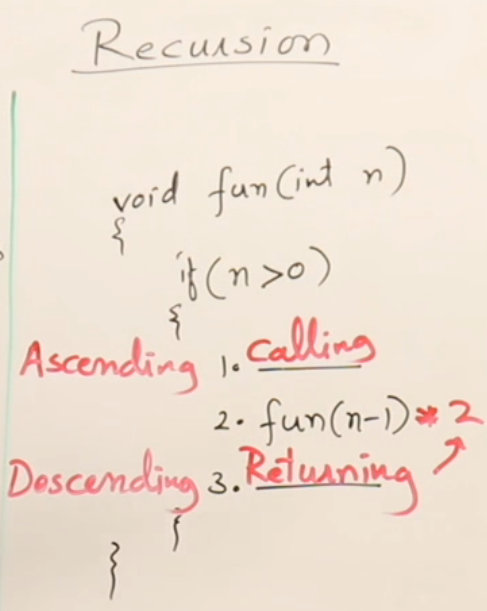 Recursion
void fun(int n)
{
if(n>0)
{
Ascending 1. Calling
2. fun(n-1) * 2
Descending 3. Returning
}
}